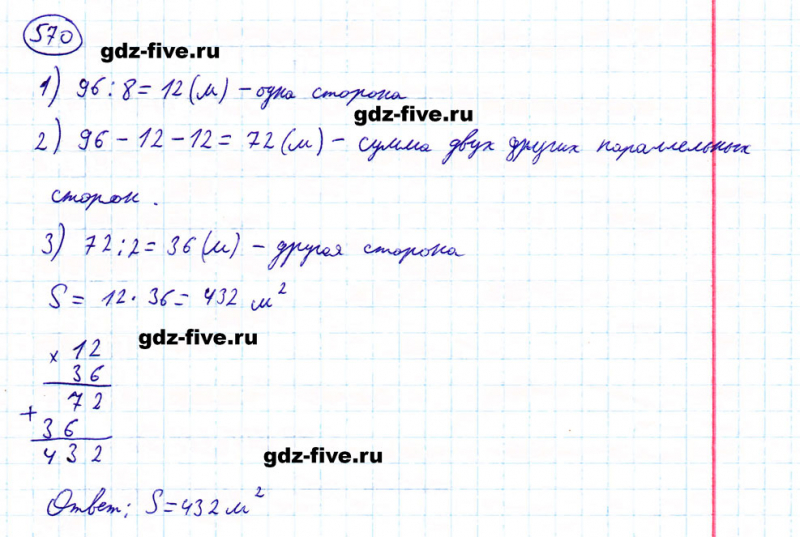 570
gdz-five.ru
1) 96 : 8 = 12 (м) – одна сторона
gdz-five.ru
2) 96 – 12 – 12 = 72 (м) – сумма двух других параллельных
сторон.
3) 72 : 2 = 36 (м) – другая сторона
S = 12 · 36 = 432 м²
gdz-five.ru
× 12
36
72
+
36
432
gdz-five.ru
Ответ: S = 432 м²